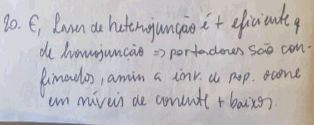 20. E, Laser de heterojunção é + eficiente q
de homojunção => portadores são con-
finados, assim a inv. d pop. ocorre
em níveis de corrente + baixos.